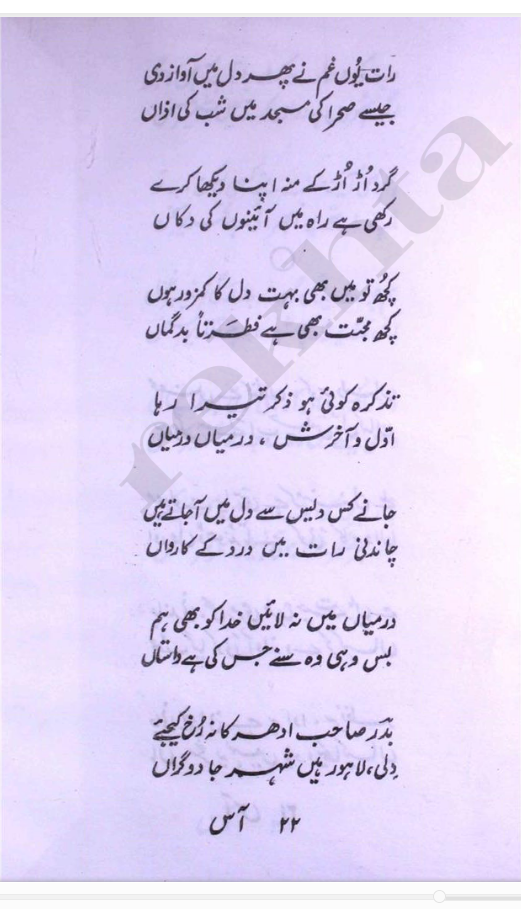 رات یُوں غم نے پھر دل میں آواز دی
جیسے صحرا کی مسجد میں شب کی اذاں
گرد اُڑ اُڑ کے منہ اپنا دیکھا کرے
رکھی ہے راہ میں آئینوں کی دکاں
کچُھ تو میں بھی بہت دل کا کمزور ہوں
کچھ محبّت بھی ہے فطرتاً بدگماں
تذکرہ کوئی ہو ذکر تیرا رہا
اوّل و آخرش ، درمیاں درمیاں
جانے کس دیس سے دل میں آجاتے ہیں
چاندنی رات میں درد کے کارواں
درمیاں میں نہ لائیں خدا کو بھی ہم
بس وہی وہ سنے جس کی ہے داستاں
بدر صاحب ادھر کا نہ رُخ کیجئے
دِلی، لاہور ہیں شہر جادوگراں
۲۲ آس
rekhta